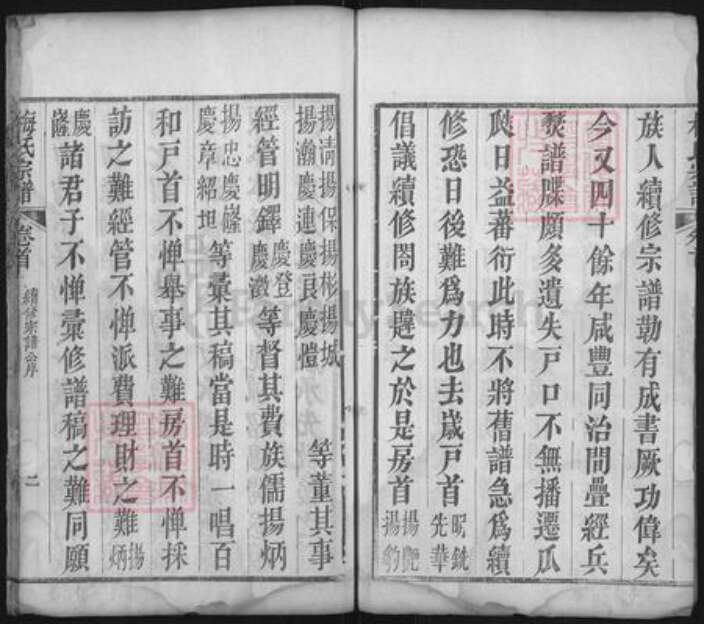 族人續修宗譜勒有成書厥功偉矣
今又四十餘年咸豐同治間疊經兵
燹譜牒頗多遺失戸口不無播遷瓜
瓞日益蕃衍此時不將舊譜急爲續
修恐日後難爲力也去歲戸首昭銑先華
倡議續修閤族韙之於是房首揚艷揚豹
揚清揚保揚彬揚城揚瀚慶連慶良慶愷等董其事
經管明鐸慶登慶澂等督其費族儒揚炳
揚忠慶隆慶章紹坦等彙其稿當是時一唱百
和戸首不憚舉事之難房首不憚採
訪之難經管不憚派費理財之難揚炳
慶隆諸君子不憚彙修譜稿之難同願
梅氏宗譜
卷首
續修宗譜公序
二
FamilySearch